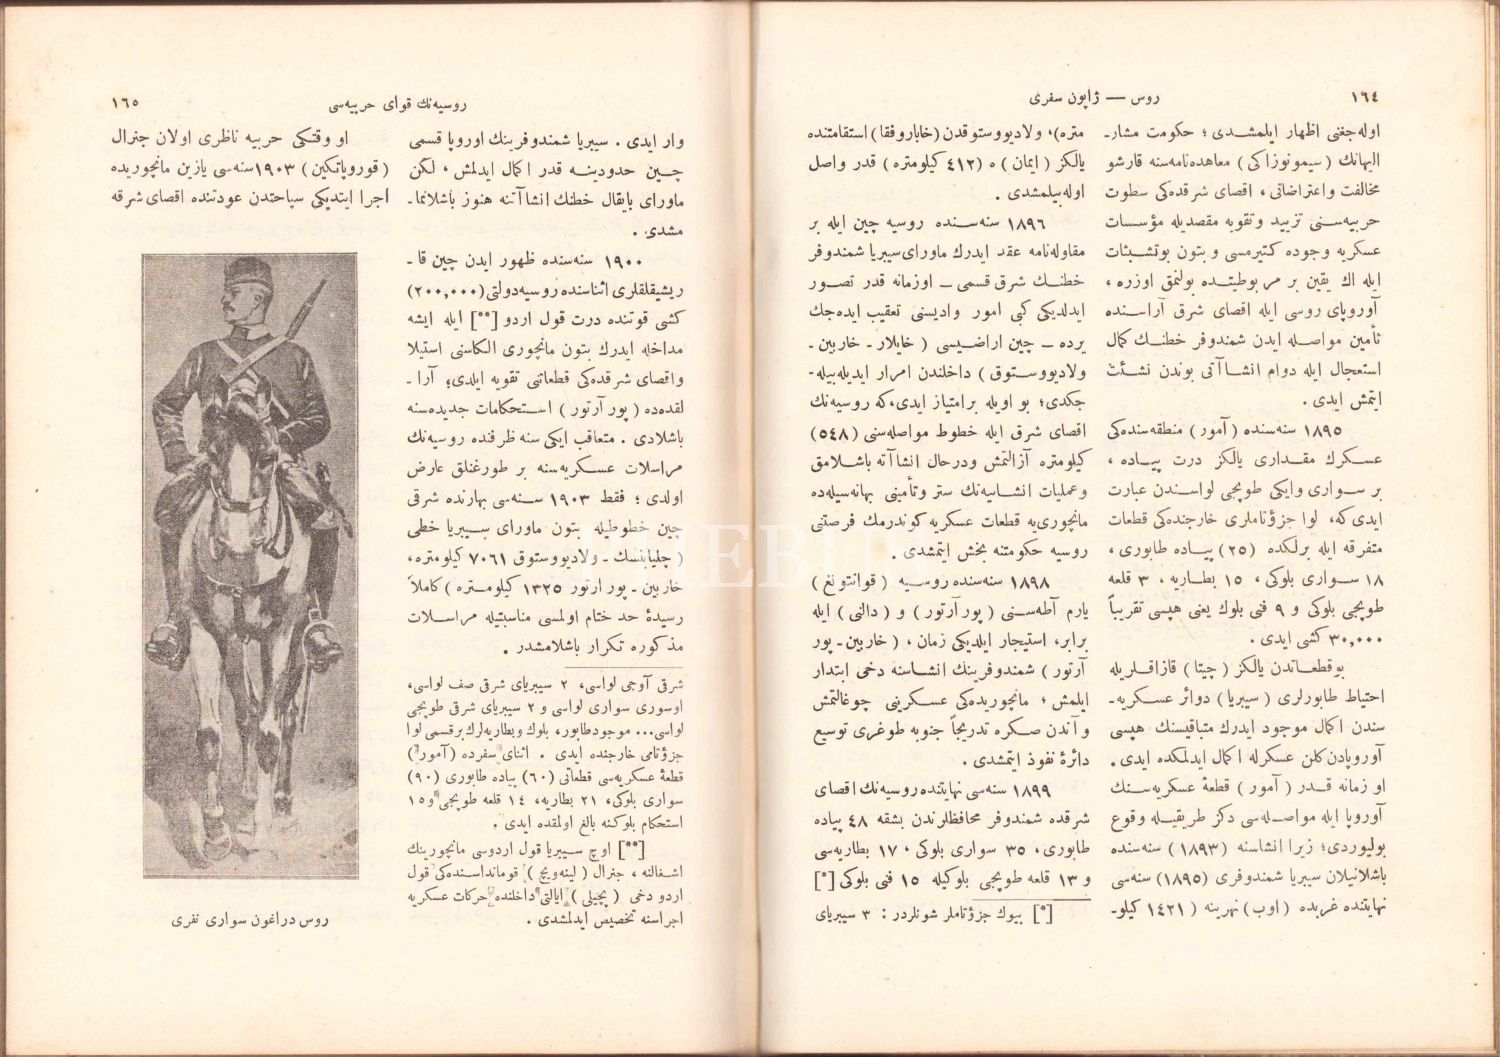 ١٦٤
روس — ژاپون سفری
اوله‌جغنی اظهار ایلمشدی ؛ حکومت مشار-
الیهانك (سیمونوزاکی) معاهده‌نامه‌سنه قارشو
مخالفت واعتراضاتی ، اقصای شرقده‌کی سطوت
حربیه‌سـنی تزیید وتقویه مقصدیله مؤسسات
عسکریه وجوده کتیرمسی و بتون بوتشبثات
ایله اك یقین بر مربوطیتده بولنمق اوزره ،
آوروپای روسی ایله اقصای شرق آراسـنده
تأمین مواصله ایدن شمندوفر خطنـك کمال
استعجال ایله دوام انشاآتی بوندن نشئت
ایتمش ایدی .
١٨٩٥ سنه‌سنده (آمور) منطقه‌سنده‌کی
عسکرك مقـداری یالکز درت پیـاده ،
بر سـواری وایکی طوپجی لواسـندن عبارت
ایدی‌که ، لوا جزؤتاملری خارجنده‌کی قطعات
متفرقه ایله برلکده (٢٥) پیـاده طابوری ،
١٨ سـواری بلوکی ، ١٥ بطاریه ، ٣ قلعه
طوپجی بلوکی و ٩ فنی بلوك یعنی هپسی تقریباً
٣٠,٠٠٠ کشی ایدی .
بوقطعاتدن یالکز (چیتا) قازاقلریله
احتیاط طابورلری (سیبریا) دوائر عسکریه-
سندن اکمال موجود ایدرك متباقیسنك هپسی
آوروپادن کلن عسکرله اکمال ایدلمکده ایدی .
او زمانه قـدر (آمور) قطعهٔ عسکریه‌سـنك
آوروپا ایله مواصـله‌سی دکز طریقیـله وقوع
بولیوردی ؛ زیرا انشاسنه (١٨٩٣) سنه‌سنده
باشلانیلان سیبریا شمندوفری (١٨٩٥) سنه‌سی
نهایتنده غربده (اوب) نهرینه (١٤٢١ کیلو-
متره) ، ولادیووستوقدن (خاباروفقا) استقامتنده
یالکز (ایمان) ه (٤١٢ کیلومتره) قدر واصل
اوله‌بیلمشدی .
١٨٩٦ سنه‌سـنده روسیه چین ایله بر
مقاوله‌نامه عقد ایدرك ماورای‌سیبریا شمندوفر
خطنـك شرق قسمی – اوزمانه قدر تصـور
ایدلدیکی کبی امور وادیسنی تعقیب ایده‌جك
یرده – چین اراضیـسی (خایلار - خاربین -
ولادیووسـتوق) داخلندن امرار ایدیله‌بیله-
جکدی ؛ بو اویله برامتیاز ایدی ، که روسیه‌نك
اقصای شرق ایله خطوط مواصله‌سنی (٥٤٨)
کیلومتره آزالتمش ودرحال انشاآته باشلامق
وعملیات انشائیه‌نك ستر وتأمینی بهانه‌سیله‌ده
مانچوری‌یه قطعات عسکریه کوندرمك فرصتنی
روسیه حکومتنه بخش ایتمشدی .
١٨٩٨ سنه‌سنده روسـیه (قوانتونغ)
یارم آطه‌سـنی (پورآرتور) و (دالنی) ایله
برابر ، استیجار ایلدیکی زمان ، (خاربین - پور
آرتور) شمندوفرینك انشاسنه دخی ابتدار
ایلمش ؛ مانچوریده‌کی عسکرینی چوغالتمش
و آندن صـکره تدریجاً جنوبه طوغری توسیع
دائرهٔ نفوذ ایتمشدی .
١٨٩٩ سنه‌سی نهایتنده روسیه‌نك اقصای
شرقده شمندوفر محافظلرندن بشقه ٤٨ پیاده
طابوری ، ٣٥ سواری بلوکی ، ١٧ بطاریه‌سی
و ١٣ قلعه طوپجی بلوکیله ١٥ فنی بلوکی [*]
[*] بیوك جزؤتاملر شونلردر : ٣ سیبریای
روسیه‌نك قوای حربیه‌سی
١٦٥
وار ایدی . سیبریا شمندوفرینك اوروپا قسمی
چـین حدودینـه قدر اکمال ایدلمش ، لکن
ماورای بایقال خطنك انشاآتنه هنوز باشلانما-
مشدی .
١٩٠٠ سنه‌سنده ظهور ایدن چین قا-
ریشیقلقلری اثناسنده روسیه‌دولتی (٢٠٠,٠٠٠)
کشی قوتنده درت قول اردو [**] ایله ایشه
مداخله ایدرك بتون مانچوری الکاسنی استیلا
واقصای شرقده‌کی قطعاتنی تقویه ایلدی ؛ آرا-
لقده‌ده (پور آرتور) استحکامات جدیده‌سنه
باشلادی . متعاقب ایکی سنه ظرفنده روسیه‌نك
مراسلات عسـکریه‌سنه بر طورغنلق عارض
اولدی ؛ فقط ١٩٠٣ سـنه‌سی بهارنده شرقی
چین خطوطیله بتون ماورای سـیبریا خطی
(چلیابنسك - ولادیووستوق ٧٠٦١ کیلومتره ،
خاربین - پور ارتور ١٣٢٥ کیلومتره) کاملاً
رسیدهٔ حد ختام اولمسی مناسبتیله مراسـلات
مذکوره تکرار باشلامشدر .
شرقی آوجی لواسی ، ٢ سیبریای شرقی صف لواسی ،
اوسوری سواری لواسی و ٢ سیبریای شرقی طوپجی
لواسی... موجودطابور ، بلوك وبطاریه‌لرك‌برقسمی لوا
جزؤتامی خارجنده ایدی . اثنای سفرده (آمور)
قطعهٔ عسکریه‌سی قطعاتی (٦٠) پیاده طابوری (٩٠)
سواری بلوکی ، ٢١ بطاریه ، ١٤ قلعه طوپجی و ١٥
استحکام بلوکنه بالغ اولمقده ایدی .
[**] اوچ سـیبریا قول اردوسی مانچورینك
اشـغالنه ، جنرال (لینه‌ویچ) قومانداسـنده‌کی قول
اردو دخی (پچیلی) ایالتی داخلنده حرکات عسکریه
اجراسنه تخصیص ایدلمشدی .
او وقتکی حربیه ناظری اولان جنرال
(قوروپاتکین) ١٩٠٣ سنه‌سی یازین مانچوریده
أجرا ایتدیکی سیاحتدن عودتنده اقصای شرقه
روس دراغون سواری نفری